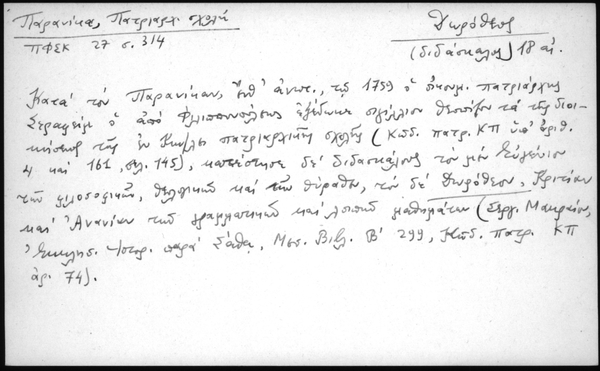 Παρανίκα, Πατριαρχ. σχολή
ΠΦΣΚ 27 σ. 314
Δωρόθεος
(διδάσκαλος) 18 αἰ.
Κατὰ τὸν Παρανίκαν, ἔνθ' ἀνωτ., τῷ 1759 ὁ οἰκουμ. πατριάρχης
Σεραφεὶμ ὁ ἀπὸ Φιλιππουπόλεως ἐξέδωκε σιγίλλιον θεσπίζον τὰ τῆς διοι-
κήσεως τῆς ἐν Κων/λει πατριαρχικῆς σχολῆς (Κώδ. πατρ. ΚΠ ὑπ' ἀριθ.
4 καὶ 161, σελ. 145), κατέστησε δὲ διδασκάλους τὸν μὲν Εὐγένιον
τῶν φιλοσοφικῶν, θεολογικῶν καὶ τῶν θύραθεν, τὸν δὲ Δωρόθεον, Κριτίαν
καὶ Ἀνανίαν τῶν γραμματικῶν καὶ λοιπῶν μαθημάτων (Σεργ. Μακραίου,
Ἐκκλησ. Ἱστορ. παρὰ Σάθᾳ, Μεσ. Βιβλ. Β' 299, Κώδ. πατρ. ΚΠ
ἀρ. 74).